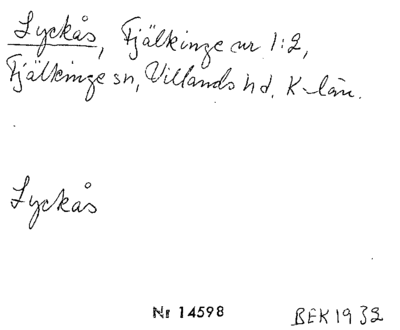 Lyckås, Fjälkinge nr 1:2,
Fjälkinge sn, Villands hd. K-län.
Lyckås
Nr 14598
BEK 1932